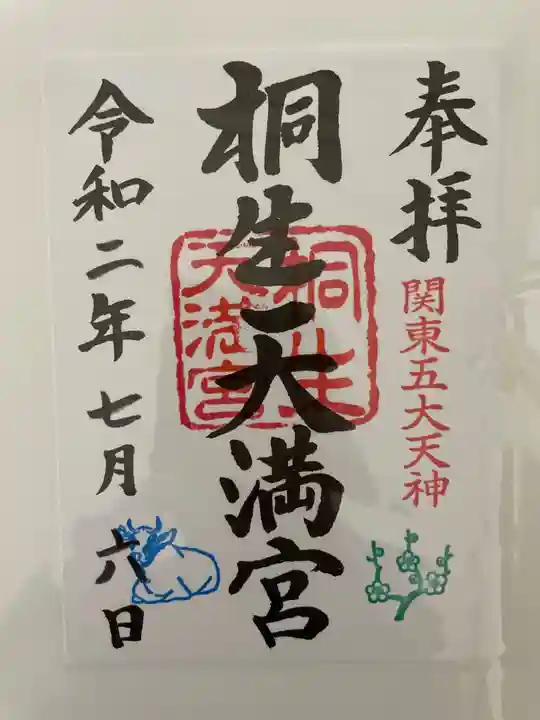 奉拝
関東五大天神
桐生天満宮
桐生
天満宮
令和二年七月六日